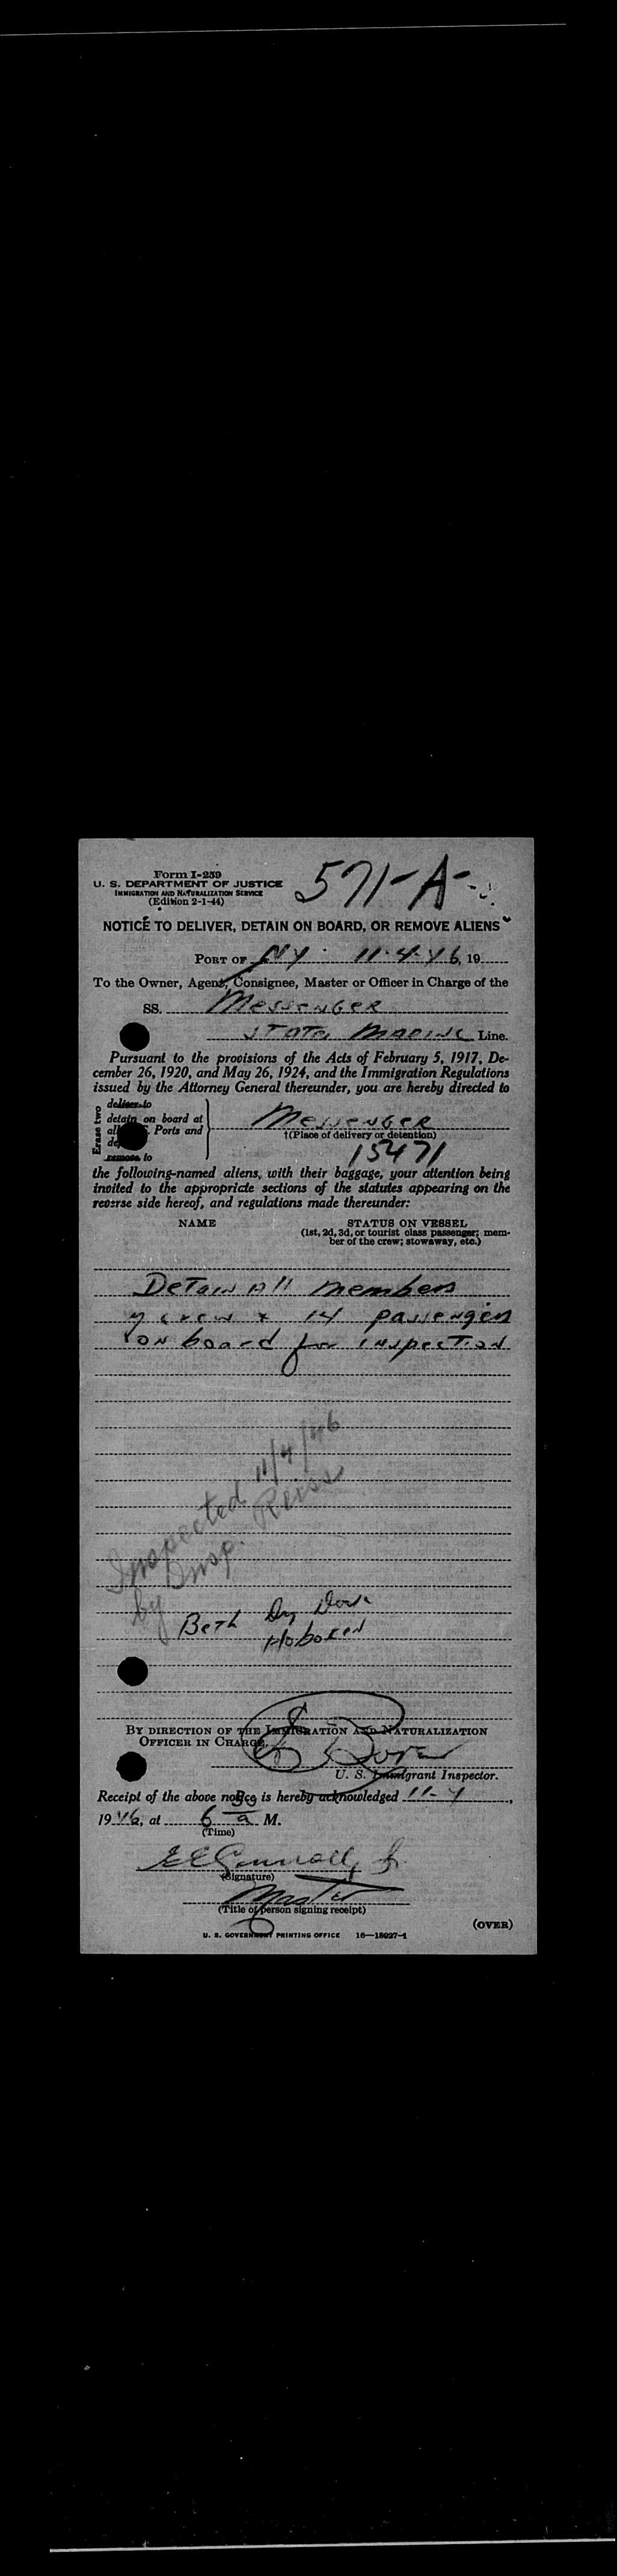 Form I-259
571-A-
U. S. DEPARTMENT OF JUSTICE
IMMIGRATION AND NATURALIZATION SERVICE
(Edition 2-1-44)
NOTICE TO DELIVER, DETAIN ON BOARD, OR REMOVE ALIENS
PORT OF NY 11-4-46, 19
To the Owner, Agent, Consignee, Master or Officer in Charge of the
SS. MESSENGER
STATE MARINE Line.
Pursuant to the provisions of the Acts of February 5, 1917, De-
cember 26, 1920, and May 26, 1924, and the Immigration Regulations
issued by the Attorney General thereunder, you are hereby directed to
Erase two
deliver to
detain on board at
Ports and
remove to
MESSENGER
†(Place of delivery or detention)
15471
the following-named aliens, with their baggage, your attention being
invited to the appropriate sections of the statutes appearing on the
reverse side hereof, and regulations made thereunder:
NAME
STATUS ON VESSEL
(1st, 2d, 3d, or tourist class passenger; mem-
ber of the crew; stowaway, etc.)
Detain All members
of crew & 14 passengers
on board for inspection
Inspected 11/4/46
by Insp. Reiss
Beth Dry Dock
Hoboken
BY DIRECTION OF THE IMMIGRATION AND NATURALIZATION
OFFICER IN CHARGE,
U. S. Immigrant Inspector.
Receipt of the above notice is hereby acknowledged 11-4,
1946, at 6 a M.
(Time)
(Signature)
Master
(Title of person signing receipt)
(OVER)
U. S. GOVERNMENT PRINTING OFFICE 16-18027-1